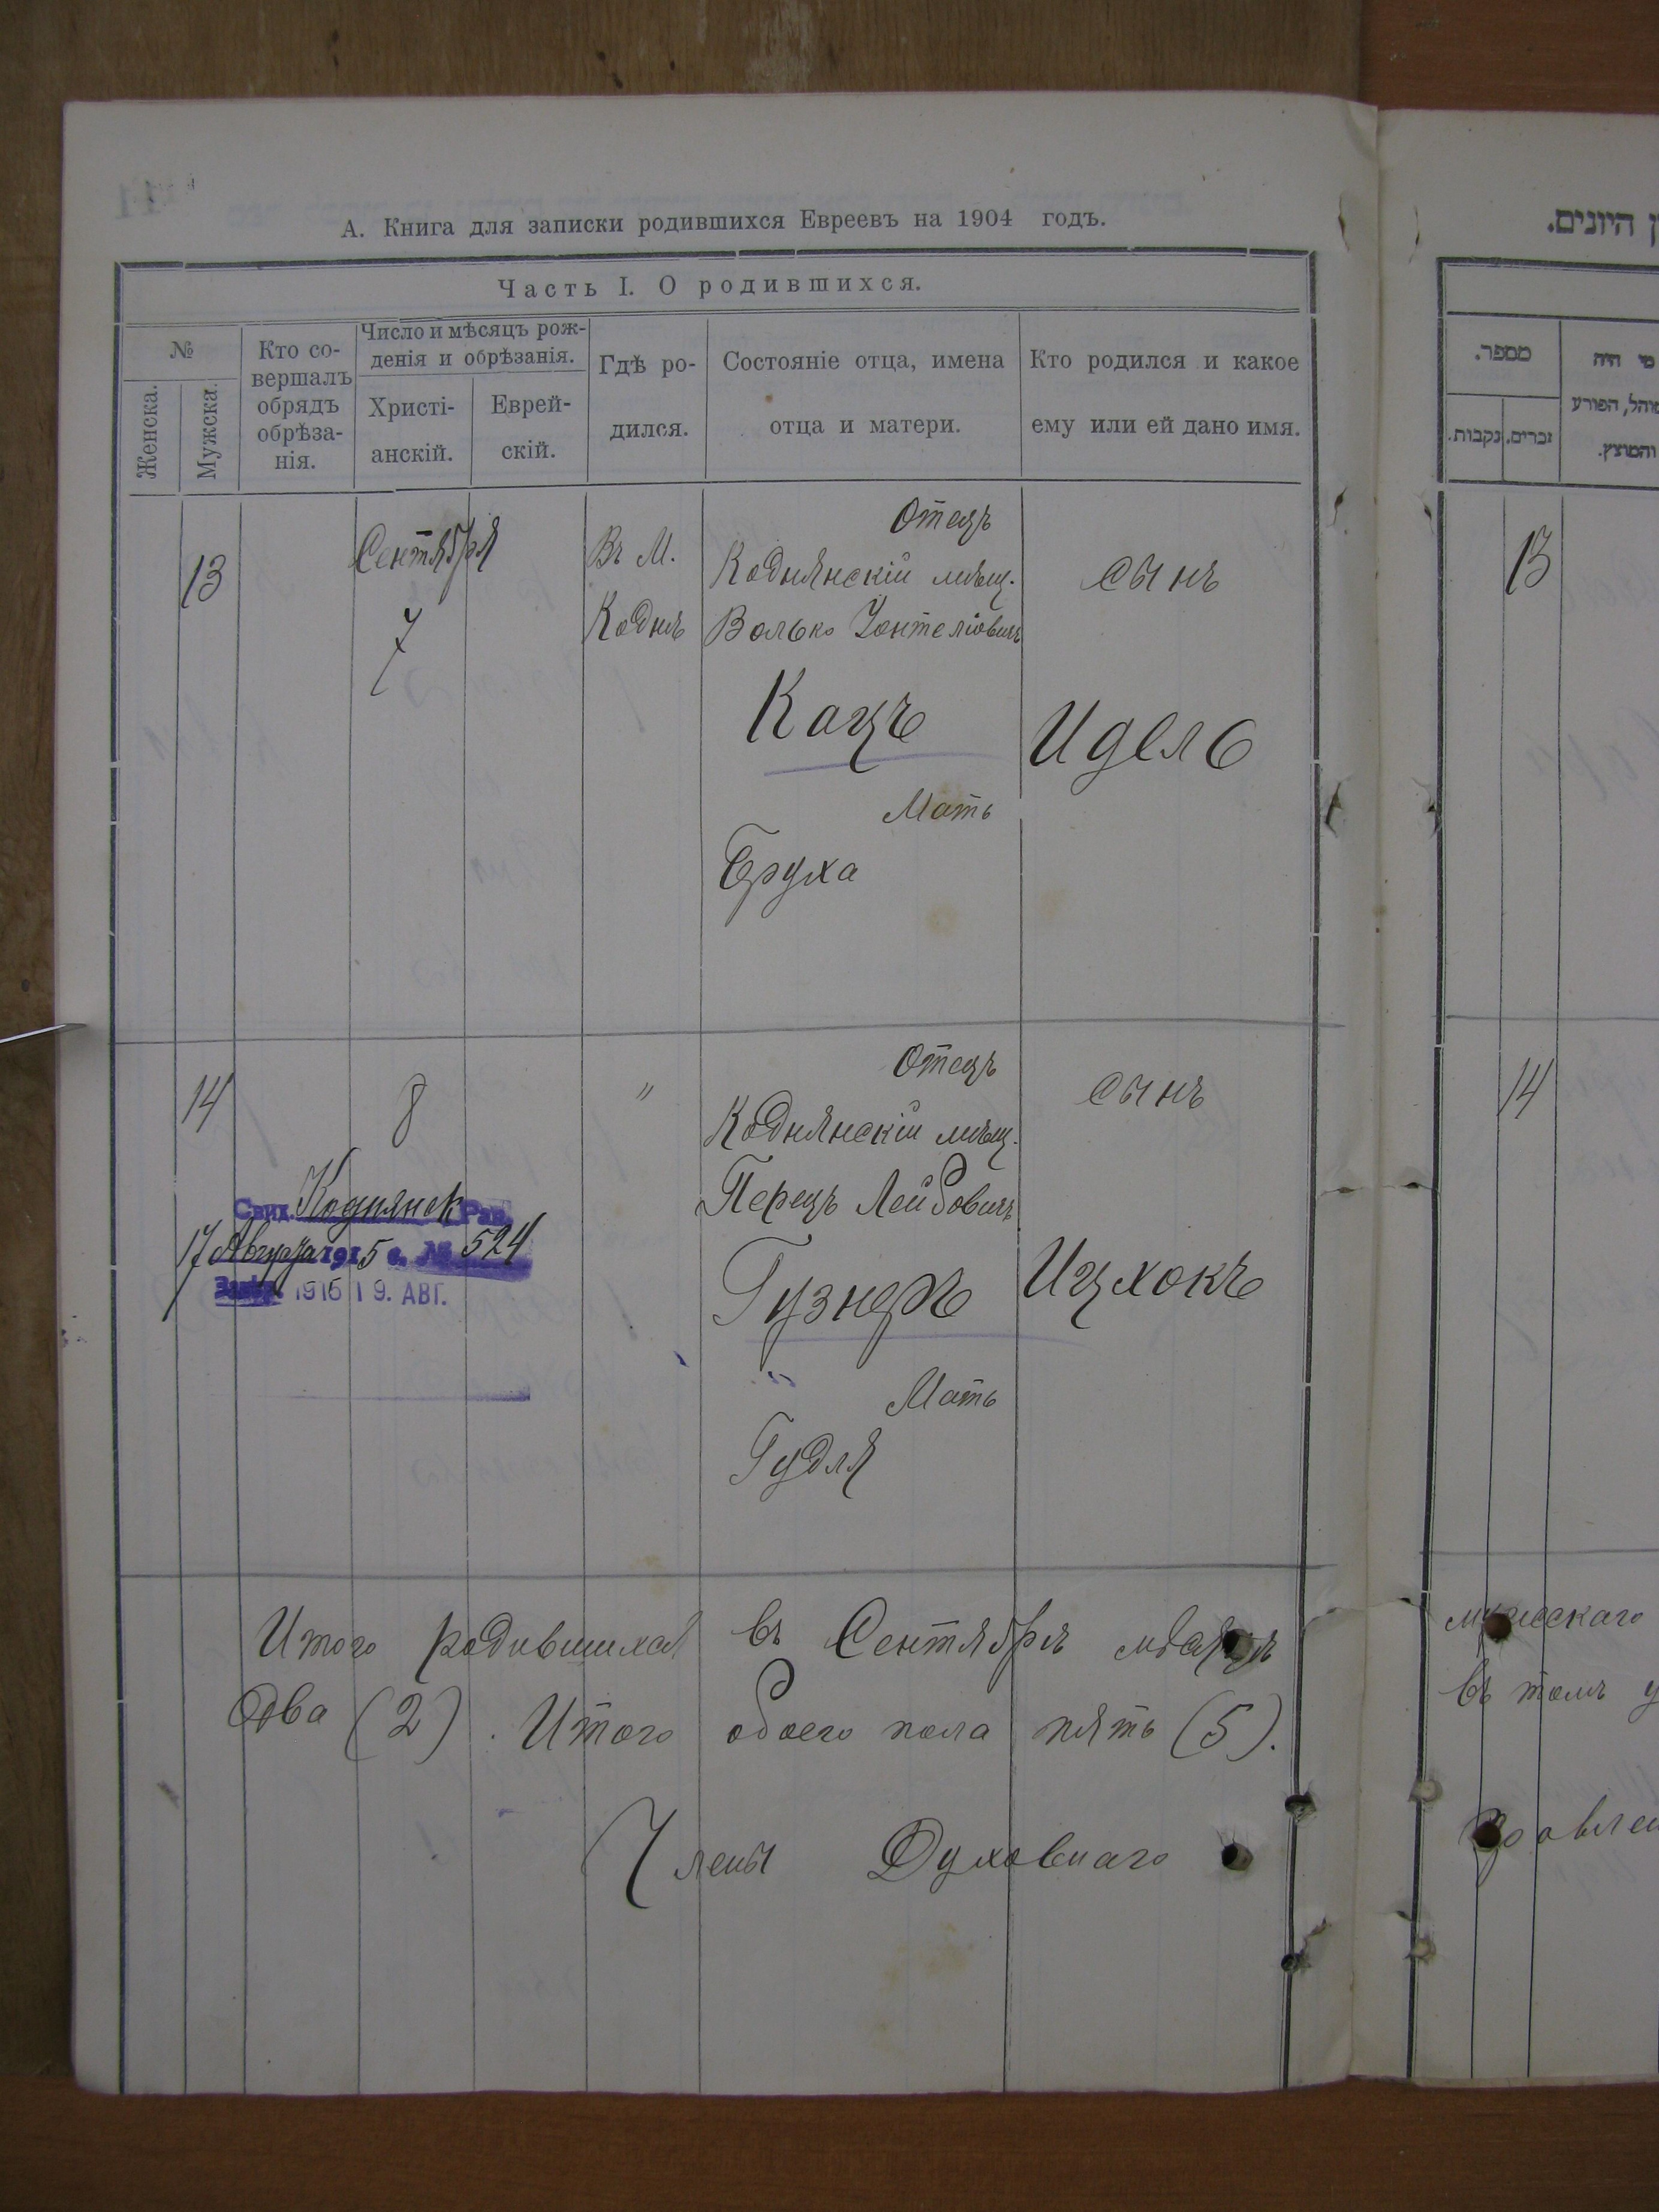 А. Книга для записки родившихся Евреевъ на 1904 годъ.
Часть I. О родившихся.
№
Женска.
Мужска.
Кто со-
вершалъ
обрядъ
обрѣза-
нія.
Число и мѣсяцъ рож-
денія и обрѣзанія.
Христі-
анскій.
Еврей-
скій.
Гдѣ ро-
дился.
Состояніе отца, имена
отца и матери.
Кто родился и какое
ему или ей дано имя.
13
Сентября
7
Въ М.
Коднѣ
Отецъ
Коднянскій мѣщ.
Волько
Кацъ
Мать
Бруха
сынъ
Идель
14
8
"
Отецъ
Коднянскій мѣщ.
Перецъ Лейбовичъ
Гузнеръ
Мать
Гудля
сынъ
Ицхокъ
Свид. Коднянск Рав.
17 Августа 1915 г. № 524
1916 19. АВГ.
Итого родившихся въ Сентябрѣ мѣсяцѣ
два (2). Итого обоего пола пять (5).
Члены Духовнаго
ן היונים.
מספר.
נקבות.
זכרים.
מי היה
מוהל, הפורע
והמוצץ.
13
14
мужескаго
въ томъ